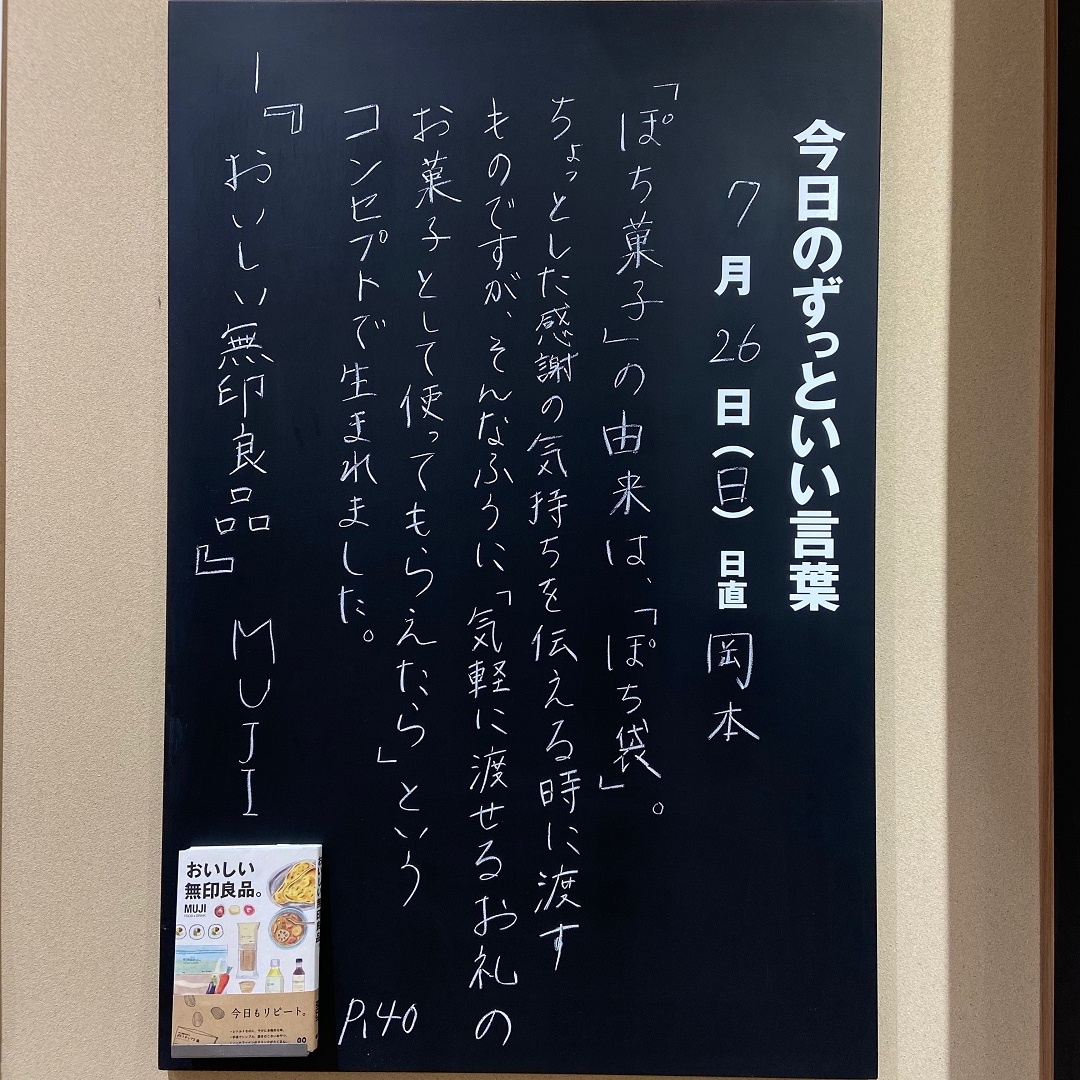 今日のずっといい言葉
7月26日(日) 日直 岡本
「ぽち菓子」の由来は、「ぽち袋」。
ちょっとした感謝の気持ちを伝える時に渡す
ものですが、そんなふうに、「気軽に渡せるお礼の
お菓子として使ってもらえたら」という
コンセプトで生まれました。
P.40
―『おいしい無印良品』 MUJI
おいしい
無印良品。
MUJI
今日もリピート。